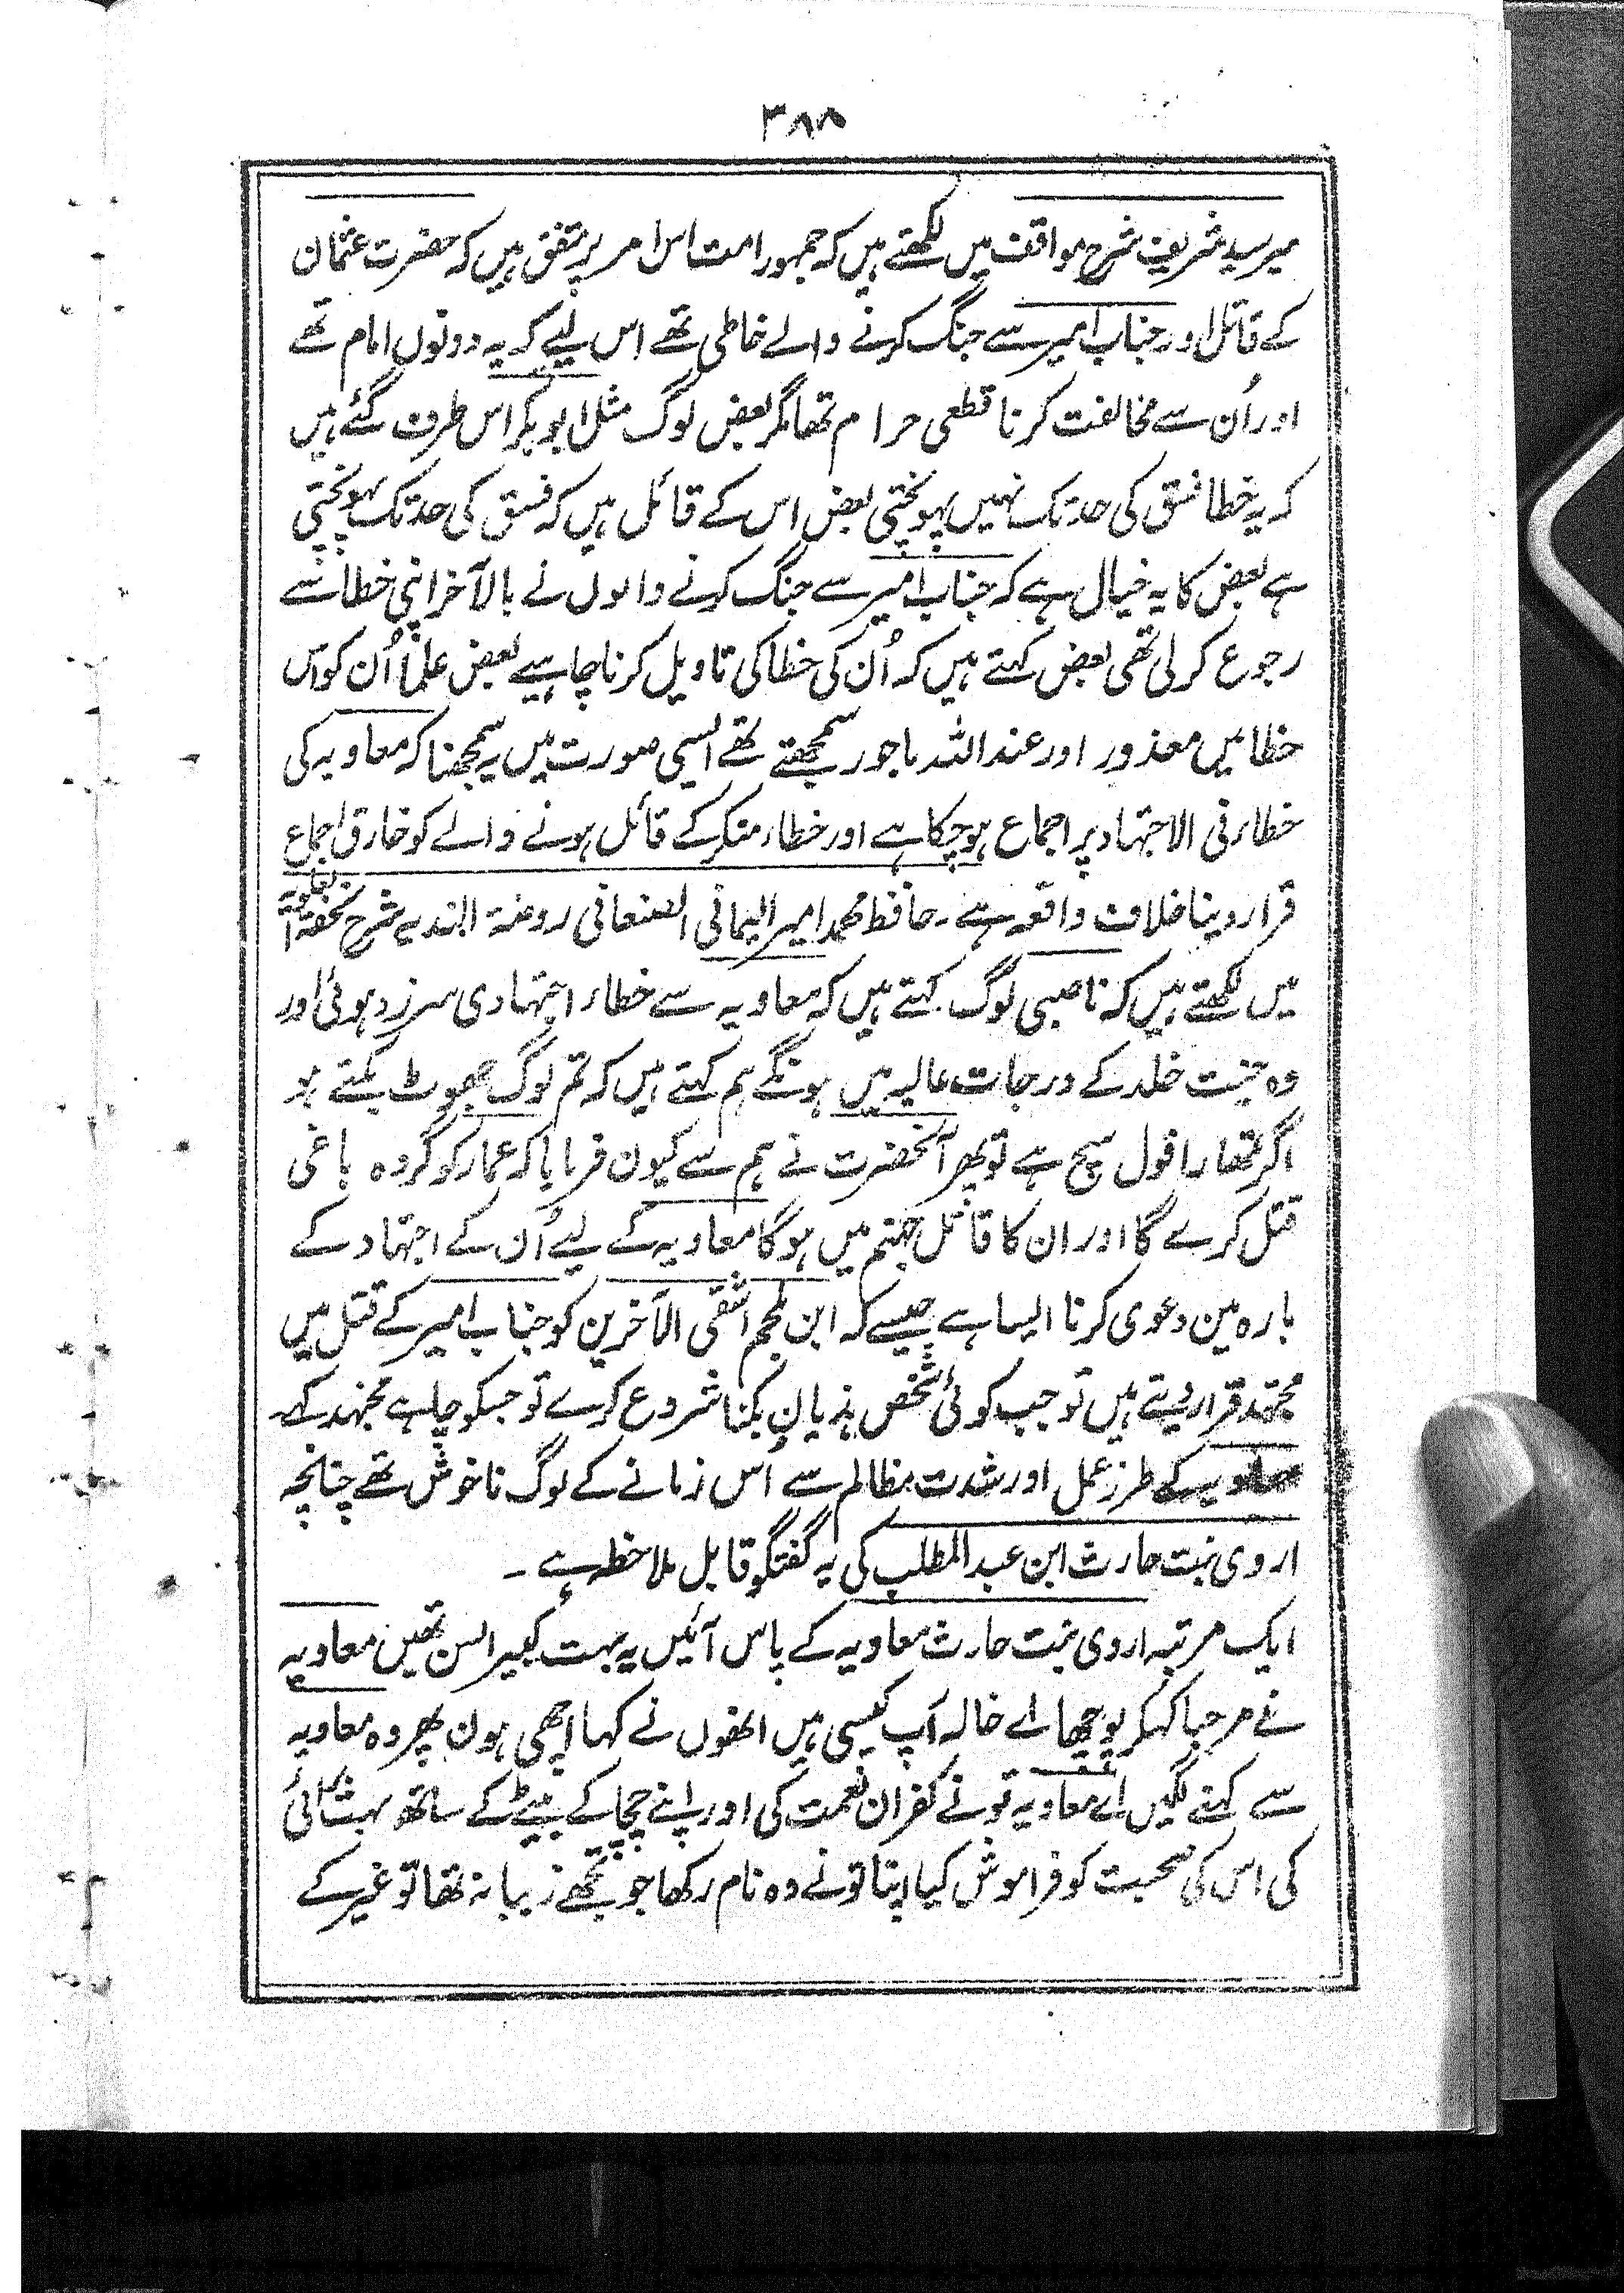 ۳۸۸
میر سید شریف شرح مواقف میں لکھتے ہیں کہ جمہور امت اس امر پر متفق ہیں کہ حضرت عثمان
کے قاتل اور جناب امیر سے جنگ کرنے والے خاطی تھے اس لیے کہ یہ دونوں امام تھے
اور اُن سے مخالفت کرنا قطعی حرام تھا مگر بعض لوگ مثل ابوبکر اس طرف گئے ہیں
کہ یہ خطا فسق کی حد تک نہیں پہونچتی بعض اس کے قائل ہیں کہ فسق کی حد تک پہونچتی
ہے بعض کا یہ خیال ہے کہ جناب امیر سے جنگ کرنے والوں نے بالآخر اپنی خطا سے
رجوع کر لی تھی بعض کہتے ہیں کہ اُن کی خطا کی تاویل کرنا چاہیے بعض علما اُن کو اس
خطا میں معذور اور عند اللہ ماجور سمجھتے تھے ایسی صورت میں یہ سمجھنا کہ معاویہ کی
خطاء فی الاجتہاد پر اجماع ہو چکا ہے اور خطاء منکر کے قائل ہونے والے کو خارق اجماع
قرار دینا خلاف واقعہ ہے۔ حافظ محمد امیر الیمانی الصنعانی روضۃ الندیہ شرح تحفۃ العلویہ
میں لکھتے ہیں کہ ناصبی لوگ کہتے ہیں کہ معاویہ سے خطاء اجتہادی سرزد ہوئی اور
وہ جنت خلد کے درجات عالیہ میں ہونگے ہم کہتے ہیں کہ تم لوگ جھوٹ بکتے ہو
اگر تمھارا قول سچ ہے تو پھر آنحضرت نے ہم سے کیون فرمایا کہ عمار کو گروہ باغی
قتل کرے گا اور ان کا قاتل جہنم میں ہوگا معاویہ کے لیے اُن کے اجتہاد کے
بارہ مین دعوی کرنا ایسا ہے جیسے کہ ابن ملجم اشقی الآخرین کو جناب امیر کے قتل میں
مجتہد قرار دیتے ہیں تو جب کوئی شخص ہذیان بکنا شروع کرے تو جسکو چاہے مجتہد کہے
معاویہ کے طرز عمل اور شدت مظالم سے اُس زمانے کے لوگ ناخوش تھے چنانچہ
اروی بنت حارث ابن عبد المطلب کی یہ گفتگو قابل ملاحظہ ہے ۔
ایک مرتبہ اروی بنت حارث معاویہ کے پاس آئیں یہ بہت کبیر السن تھیں معاویہ
نے مرحبا کہکر پوچھا اے خالہ آپ کیسی ہیں انھوں نے کہا اچھی ہون پھر وہ معاویہ
سے کہنے لگیں اے معاویہ تو نے کفران نعمت کی اور اپنے چچا کے بیٹے کے ساتھ بہت برائی
کی اس کی صحبت کو فراموش کیا اپنا تو نے وہ نام رکھا جو تجھے زیبا نہ تھا تو غیر کے